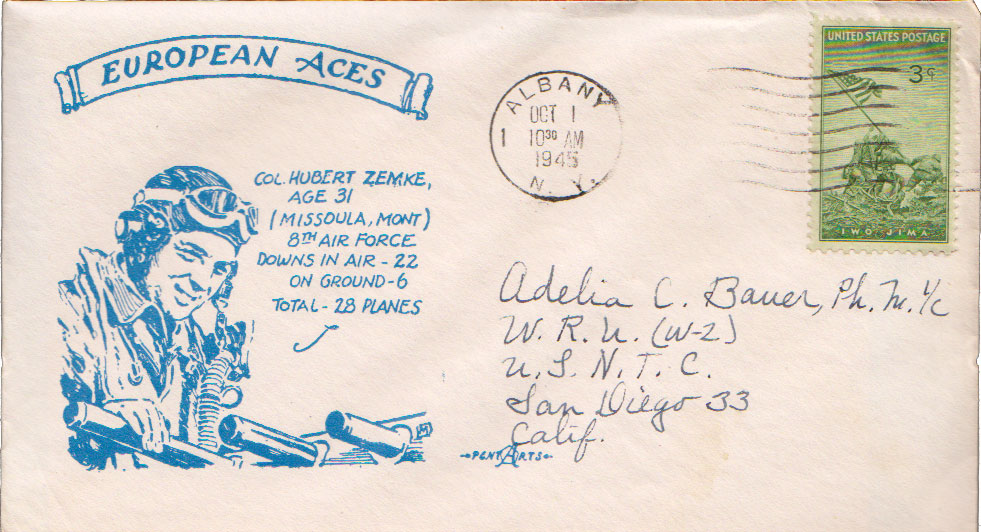 EUROPEAN ACES
COL. HUBERT ZEMKE,
AGE 31
(MISSOULA, MONT)
8TH AIR FORCE
DOWNS IN AIR - 22
ON GROUND - 6
TOTAL - 28 PLANES
ALBANY
OCT 1
1 10 30 AM
1945
N. Y.
UNITED STATES POSTAGE
3¢
IWO JIMA
Adelia C. Bauer, Ph. M. 1/c
W. R. U. (W-2)
U. S. N. T. C.
San Diego 33
Calif.
PENT ARTS